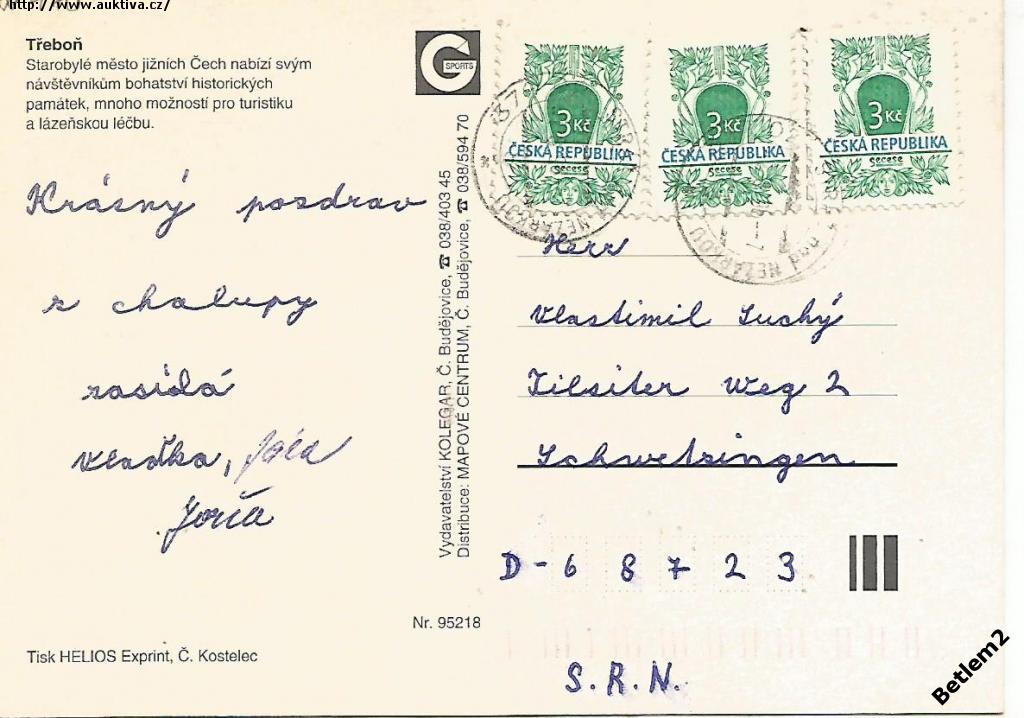 http://www.auktiva.cz/
Třeboň
Starobylé město jižních Čech nabízí svým
návštěvníkům bohatství historických
památek, mnoho možností pro turistiku
a lázeňskou léčbu.
Krásný pozdrav
z chalupy
zasílá
Vlaďka, Jáča
Jorča
Tisk HELIOS Exprint, Č. Kostelec
Nr. 95218
Vydavatelství KOLEGAR, Č. Budějovice, ☎ 038/403 45
Distribuce: MAPOVÉ CENTRUM, Č. Budějovice, ☎ 038/594 70
G
SPORTS
3 Kč
ČESKÁ REPUBLIKA
Secese
3 Kč
ČESKÁ REPUBLIKA
Secese
3 Kč
ČESKÁ REPUBLIKA
Secese
nad NEŽÁRKOU
Herr
Vlastimil Suchý
Tilsiter Weg 2
Schwetzingen
D-68723
S.R.N.
Betlem2